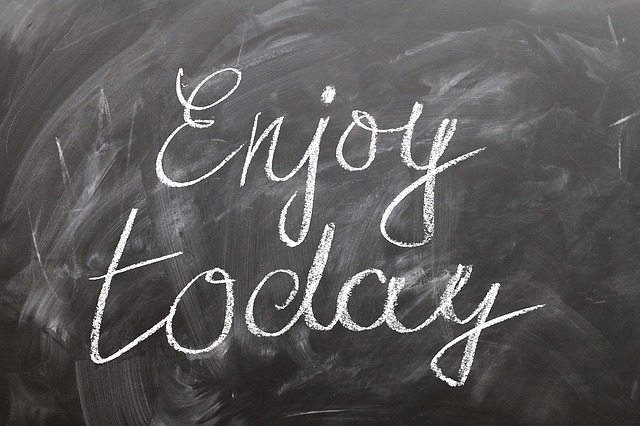 Enjoy
today